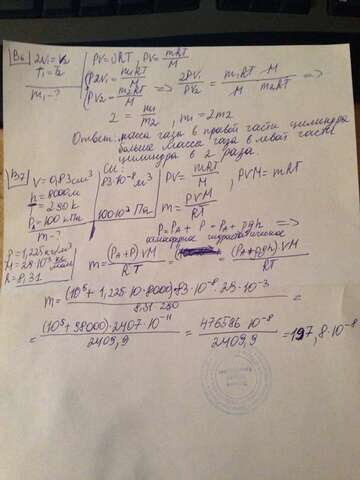 В6
2V₁ = V₂
T₁ = T₂
m₁ - ?
PV = νRT, PV = mRT/M
P2V₁ = m₁RT/M
PV₂ = m₂RT/M
=> 2PV₁/PV₂ = m₁RT M/M m₂RT =>
2 = m₁/m₂, m₁ = 2m₂
Ответ: масса газа в правой части цилиндра
больше масса газа в левой части
цилиндра в 2 раза.
В7
V = 0,83 см³
h = 8000 м
= 280 k
Pₐ = 100 кПа
m - ?
ρ = 1,225 кг/м³
M = 29·10⁻³ кг/моль
R = 8,31
Си:
83·10⁻⁸ м³
100·10³ Па
PV = mRT/M, PVM = mRT
m = PVM/RT
P = Pₐ + P = Pₐ + ρgh =>
атмосферное гидростатическое
m = (Pₐ + P)VM/RT = (Pₐ + ρgh)VM/RT
m = (10⁵ + 1,225·10·8000)·83·10⁻⁸·29·10⁻³/8,31·290 =
= (10⁵ + 98000)·2407·10⁻¹¹/2409,9 = 476586·10⁻⁸/2409,9 = 197,8·10⁻⁸